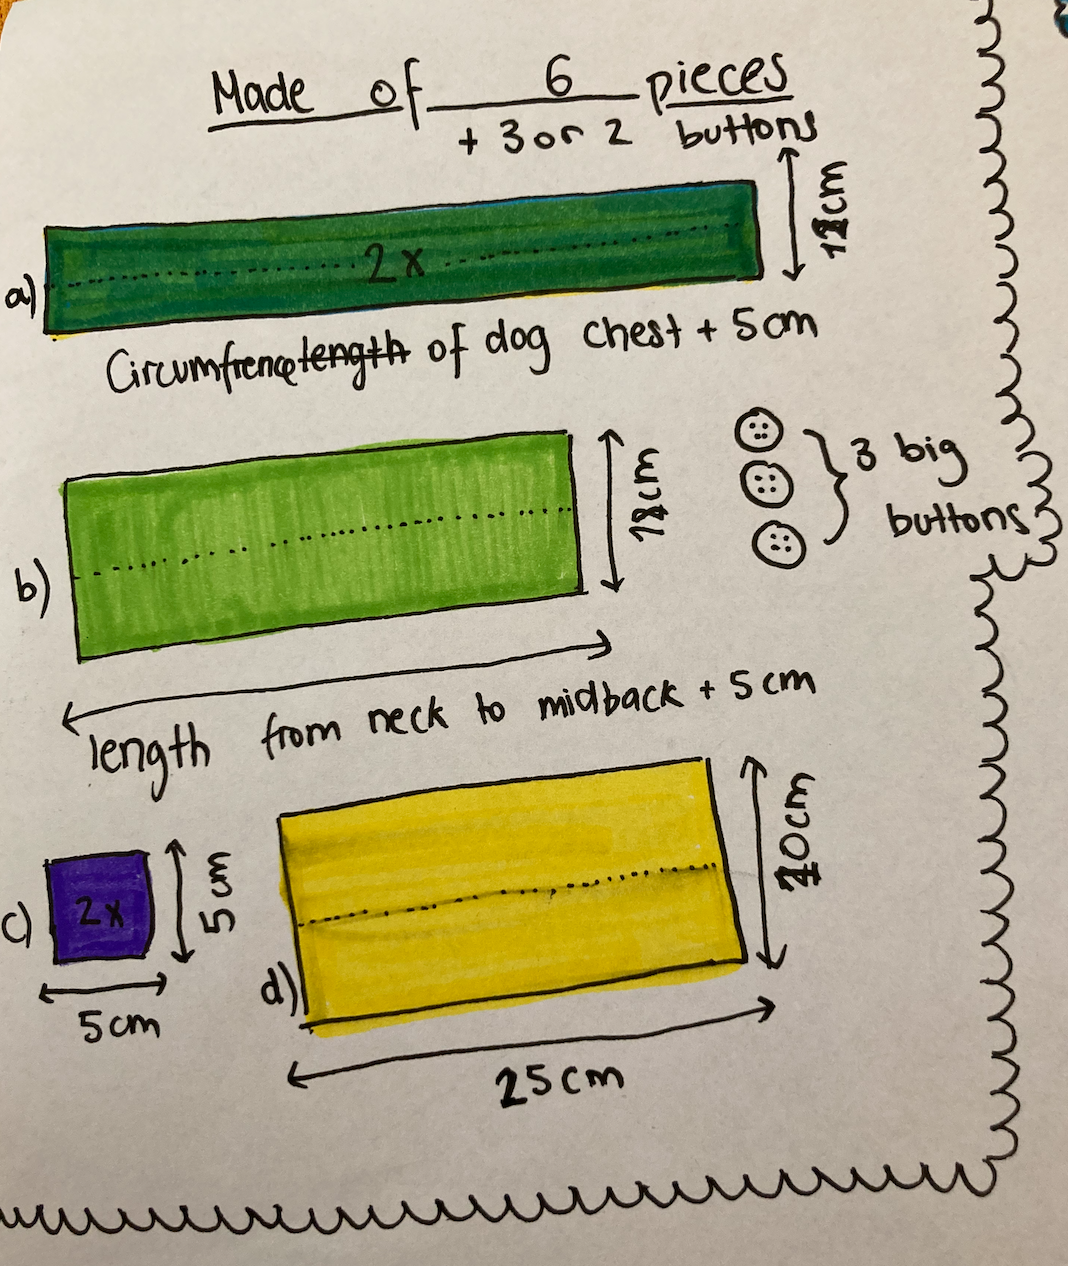 Made of 6 pieces
+ 3 or 2 buttons
cm
a)
2x
Circumfrence length of dog chest + 5cm
b)
cm
3 big
buttons
length from neck to midback + 5cm
c)
2x
5cm
5cm
d)
cm
25cm